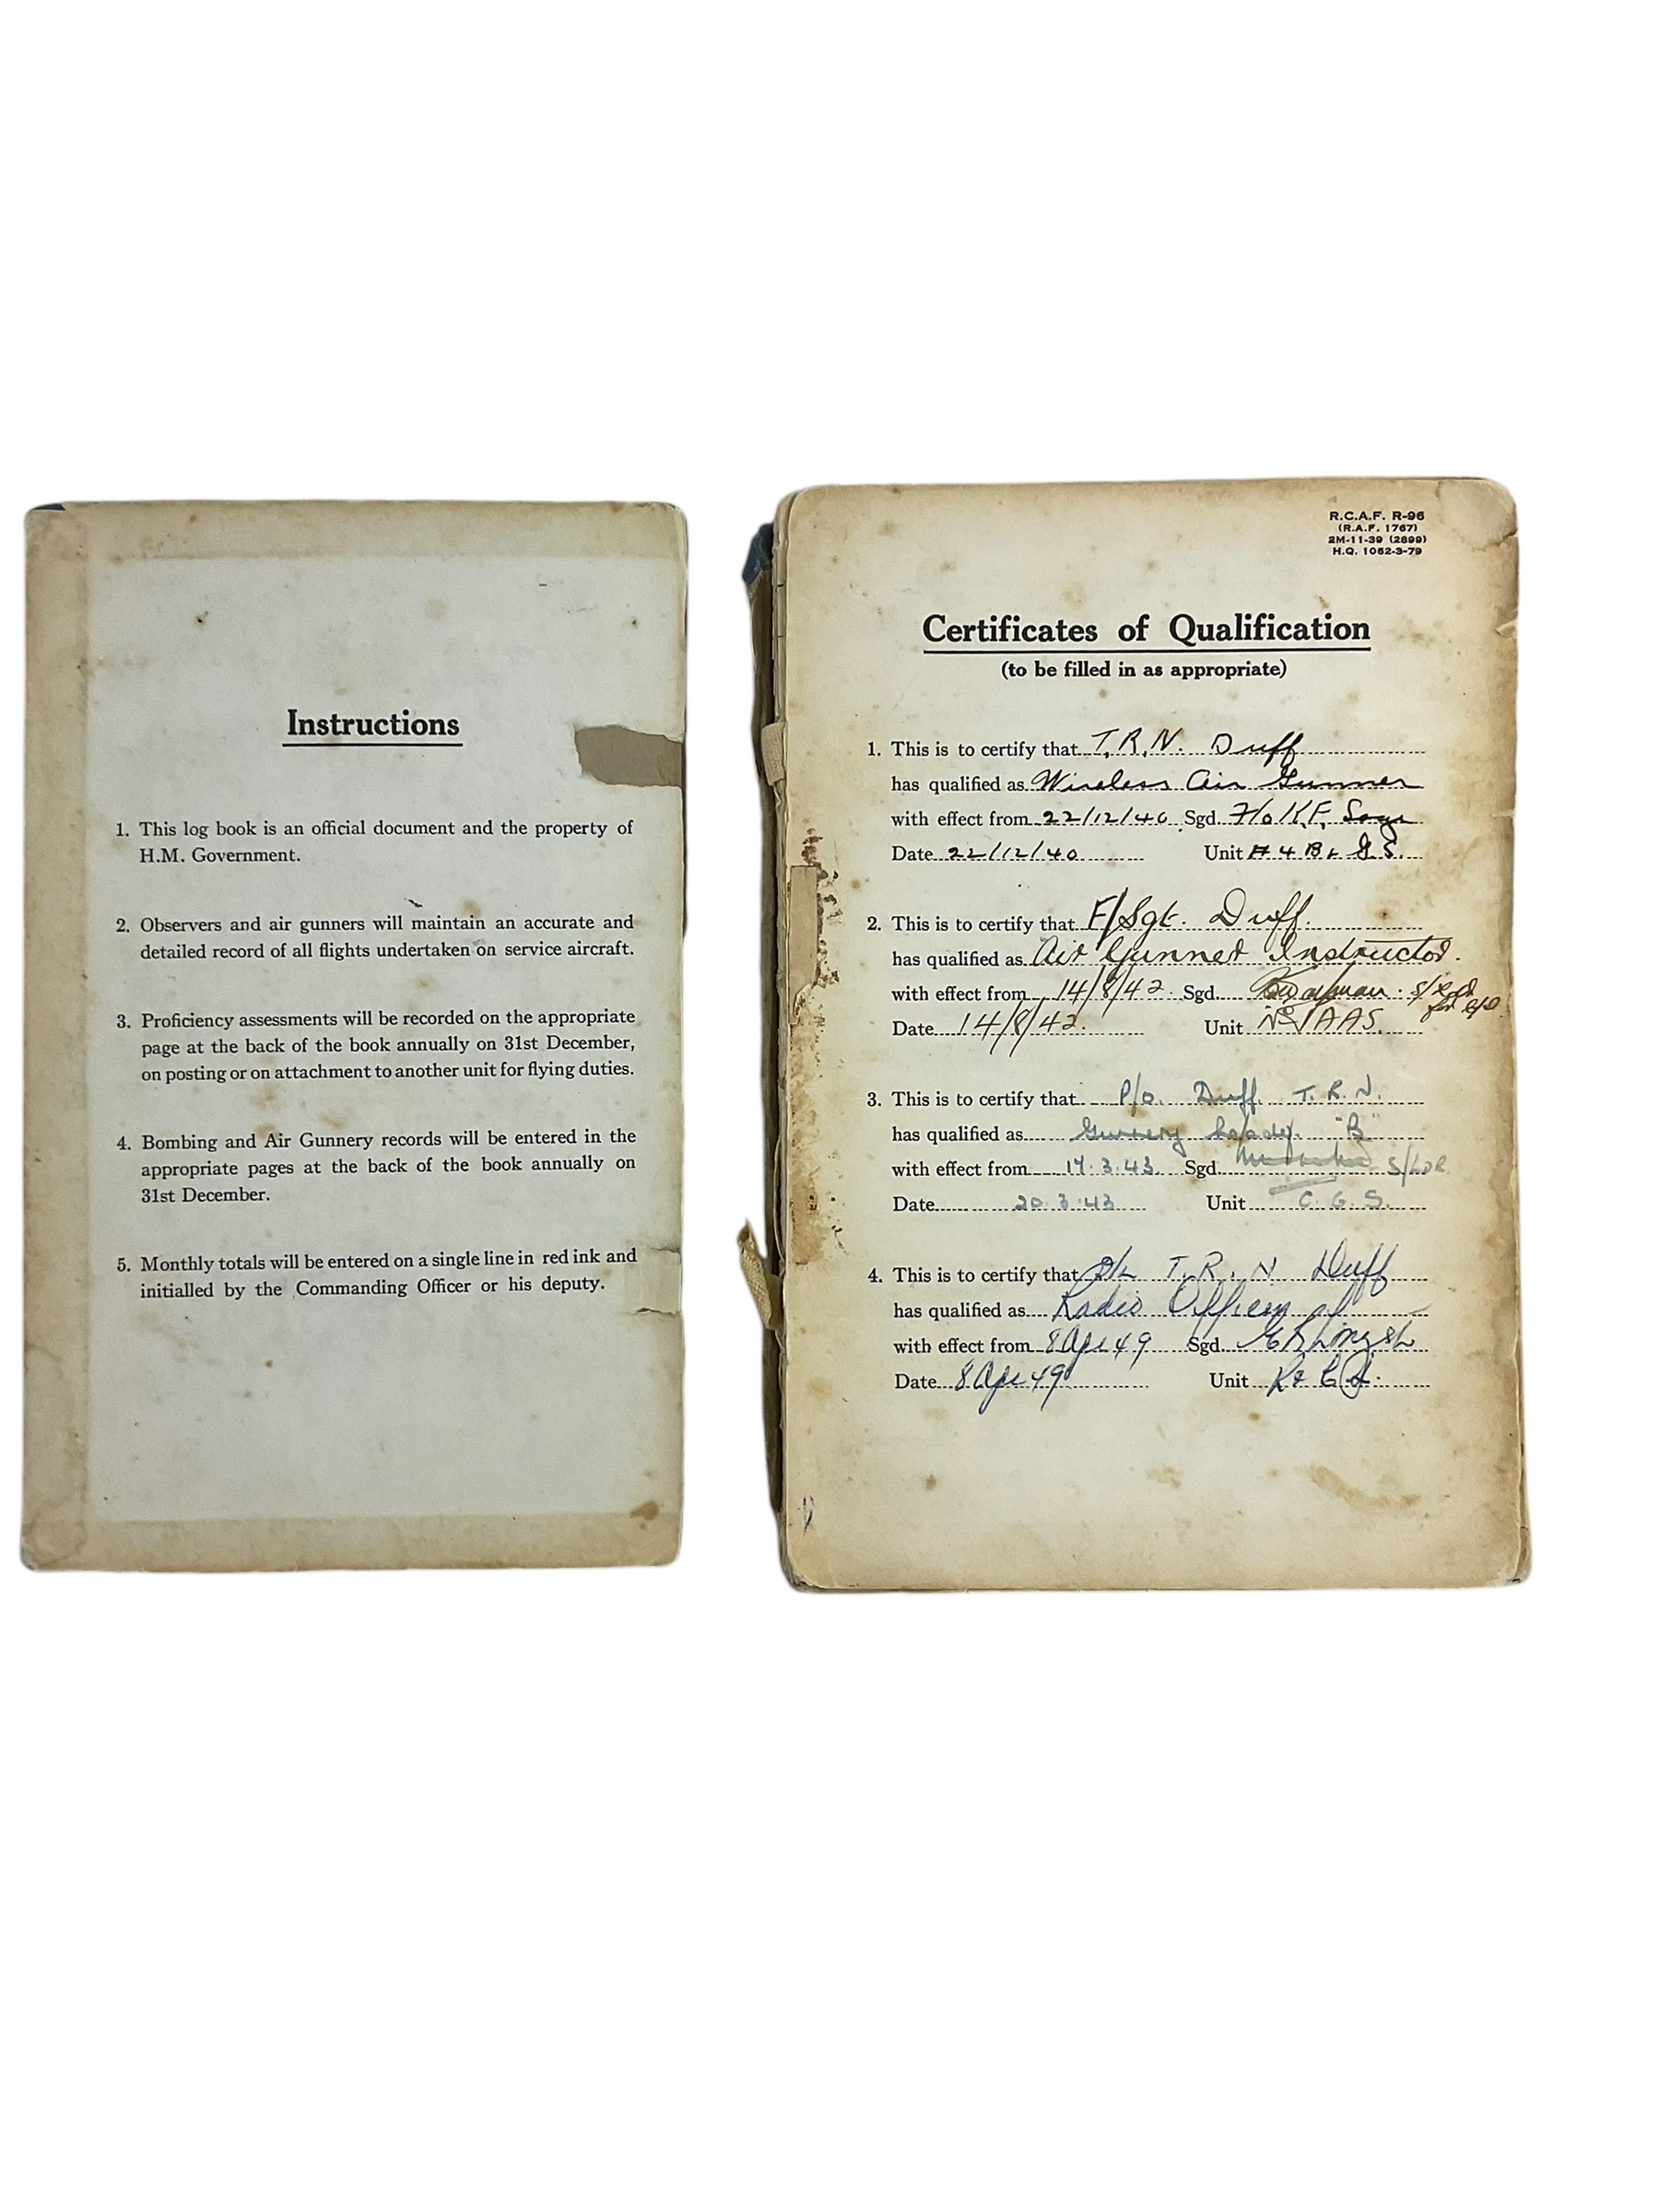 Instructions
1. This log book is an official document and the property of
H.M. Government.
2. Observers and air gunners will maintain an accurate and
detailed record of all flights undertaken on service aircraft.
3. Proficiency assessments will be recorded on the appropriate
page at the back of the book annually on 31st December,
on posting or on attachment to another unit for flying duties.
4. Bombing and Air Gunnery records will be entered in the
appropriate pages at the back of the book annually on
31st December.
5. Monthly totals will be entered on a single line in red ink and
initialled by the Commanding Officer or his deputy.
R.C.A.F. R-96
(R.A.F. 1767)
2M-11-39 (2899)
H.Q. 1062-3-79
Certificates of Qualification
(to be filled in as appropriate)
1. This is to certify that T.R.N. Duff
has qualified as Wireless Air Gunner
with effect from 22/12/40 Sgd. F/O K.F.
Date 22/12/40 Unit # 4 B & G.S.
2. This is to certify that F/Sgt. Duff.
has qualified as Air Gunner Instructor.
with effect from 14/8/42 Sgd.
Date 14/8/42. Unit No 1 AAS.
3. This is to certify that P/O Duff T.R.N.
has qualified as Gunnery Leader "B"
with effect from 17.3.43. Sgd. S/LDR.
Date 20.3.43 Unit C.G.S.
4. This is to certify that T.R.N Duff
has qualified as Radio Officer
with effect from 8 Apr 49 Sgd.
Date 8 Apr 49 Unit